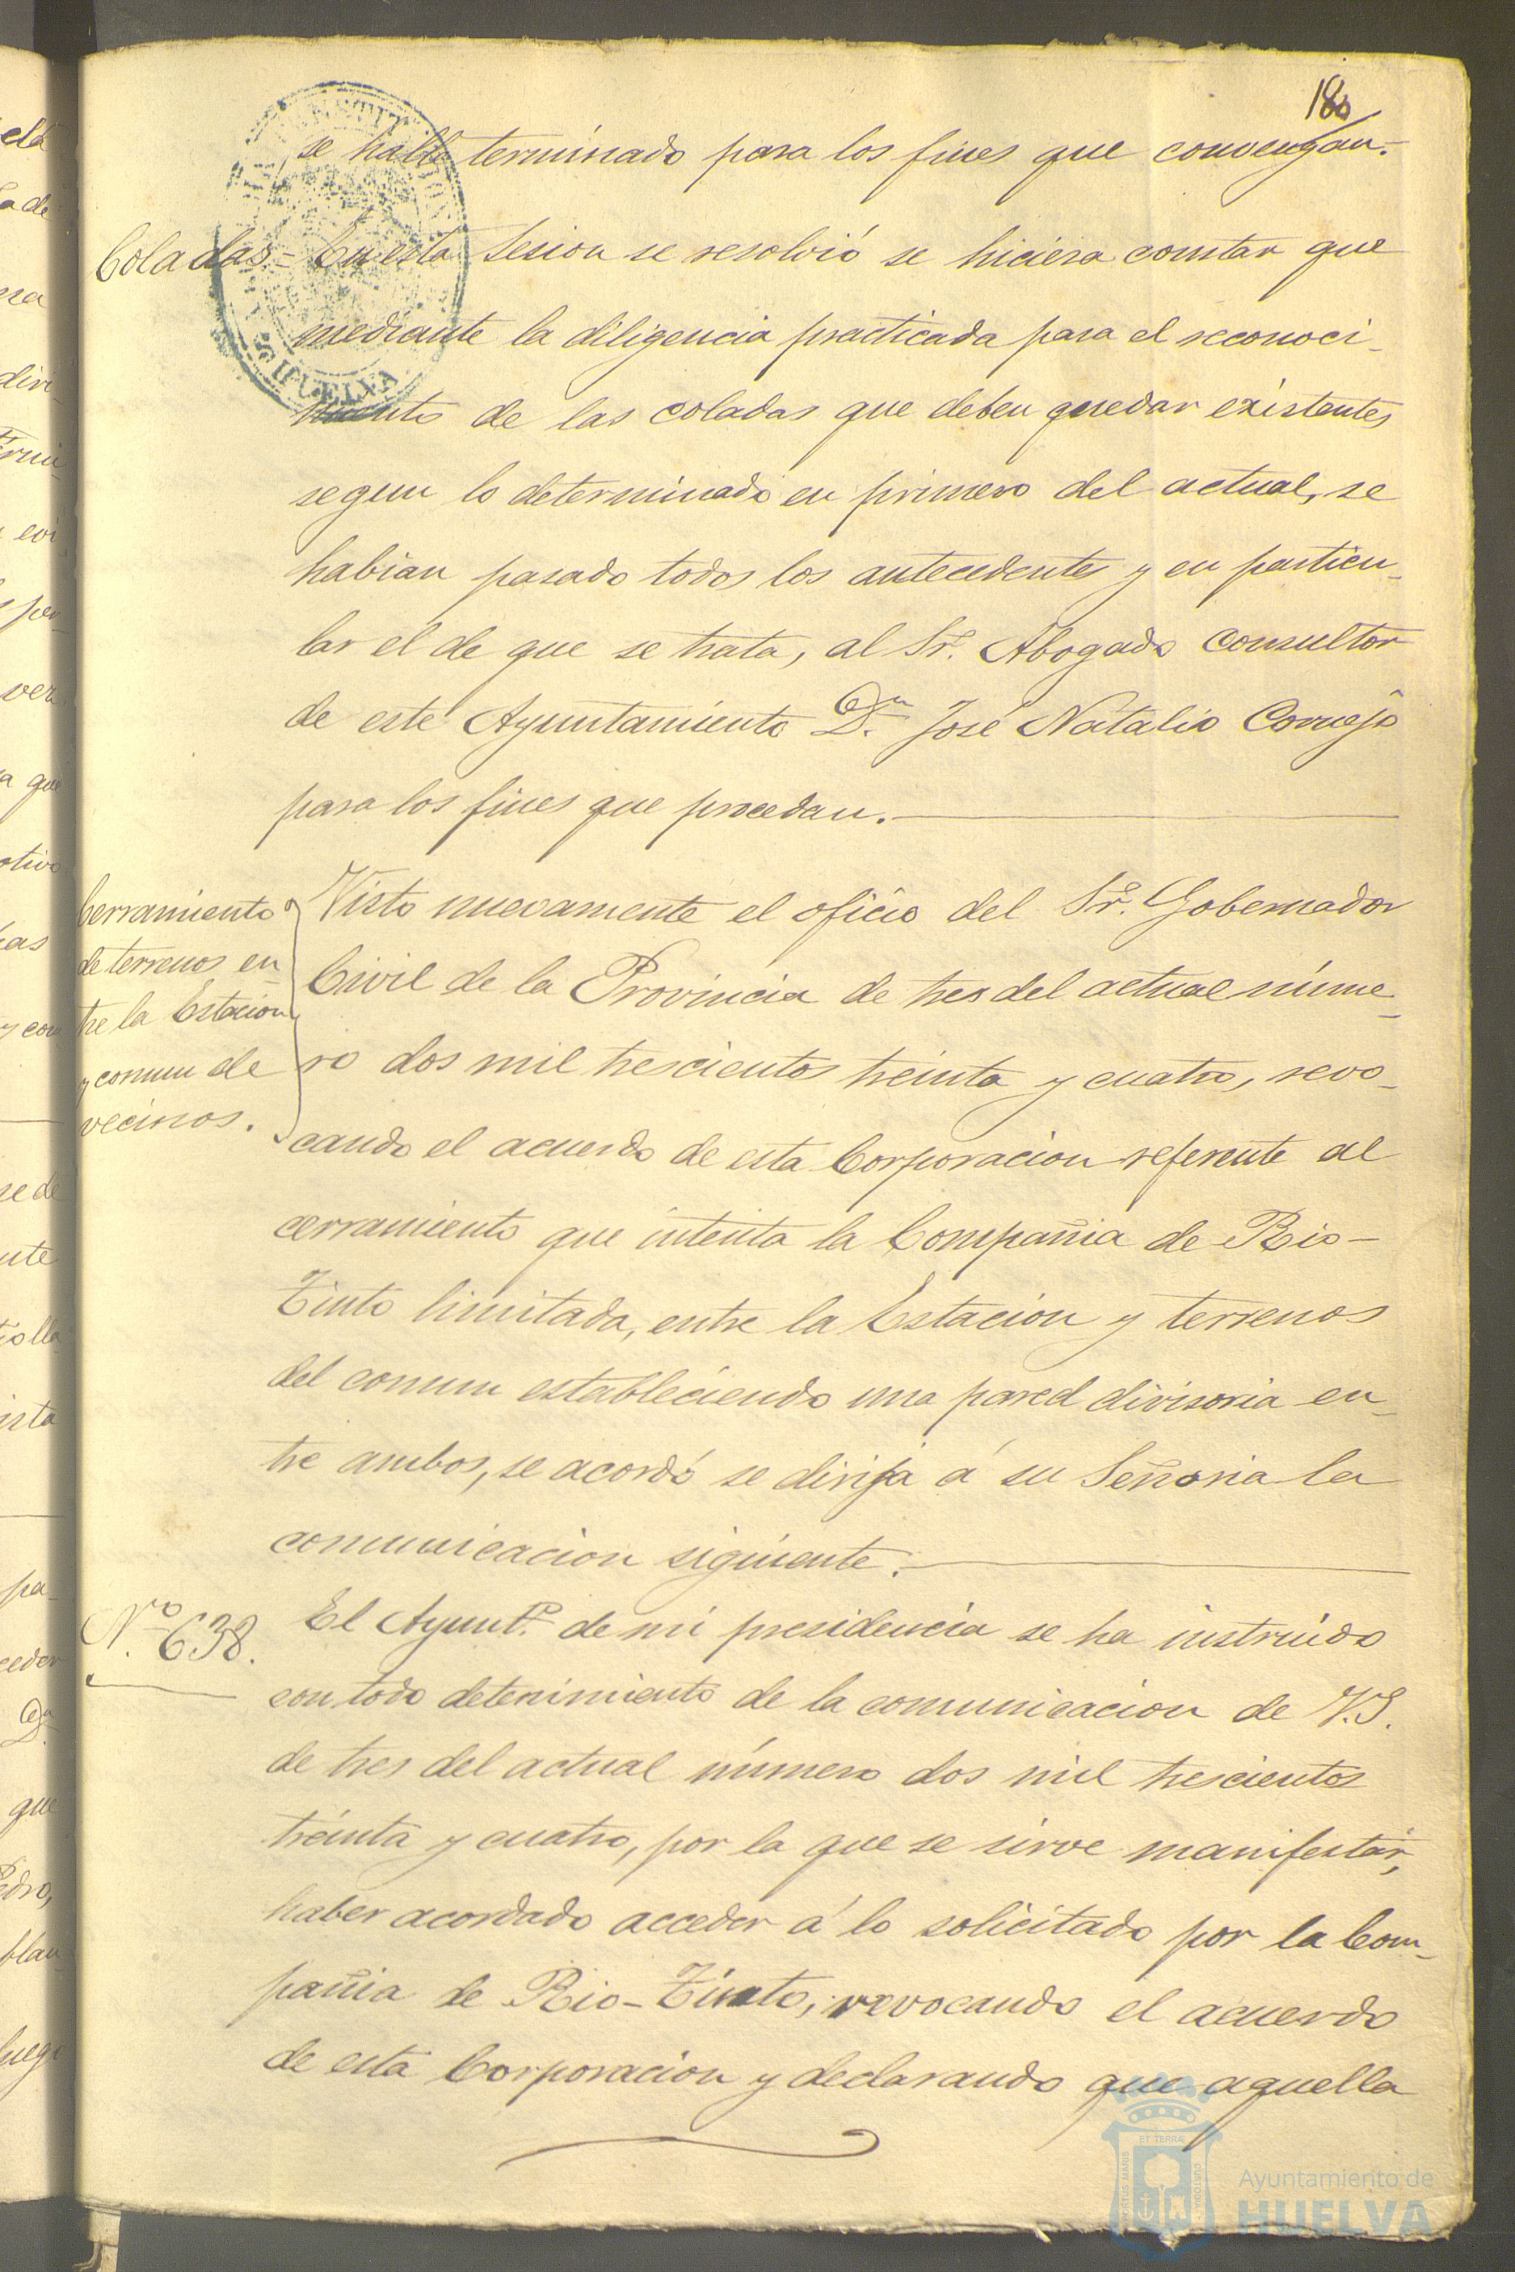 180
se halla terminado para los fines que convengan.-
Coladas = En esta Sesion se resolvió se hiciera constar que
mediante la diligencia practicada para el reconoci-
miento de las coladas que deben quedar existentes
segun lo determinado en primero del actual, se
habian pasado todos los antecedentes y en particu-
lar el de que se trata, al Sr. Abogado Consultor
de este Ayuntamiento Dn. José Natalio Cornejo
para los fines que procedan.
Cerramiento
de terrenos en-
tre la Estacion
y comun de
vecinos.
Visto nuevamente el oficio del Sr. Gobernador
Civil de la Provincia de tres del actual núme-
ro dos mil trescientos treinta y cuatro, revo-
cando el acuerdo de esta Corporacion referente al
cerramiento que intenta la Compañia de Rio-
Tinto limitada, entre la Estacion y terrenos
del comun estableciendo una pared divisoria en-
tre ambos, se acordó se dirija á su Señoria la
comunicacion siguiente.
Nº 638.
El Ayuntº. de mi presidencia se ha instruido
con todo detenimiento de la comunicacion de V.S.
de tres del actual número dos mil trescientos
treinta y cuatro, por la que se sirve manifestar,
haber acordado acceder á lo solicitado por la Com-
pañia de Rio-Tinto, revocando el acuerdo
de esta Corporacion y declarando que aquella
HUELVA
Ayuntamiento de
HUELVA